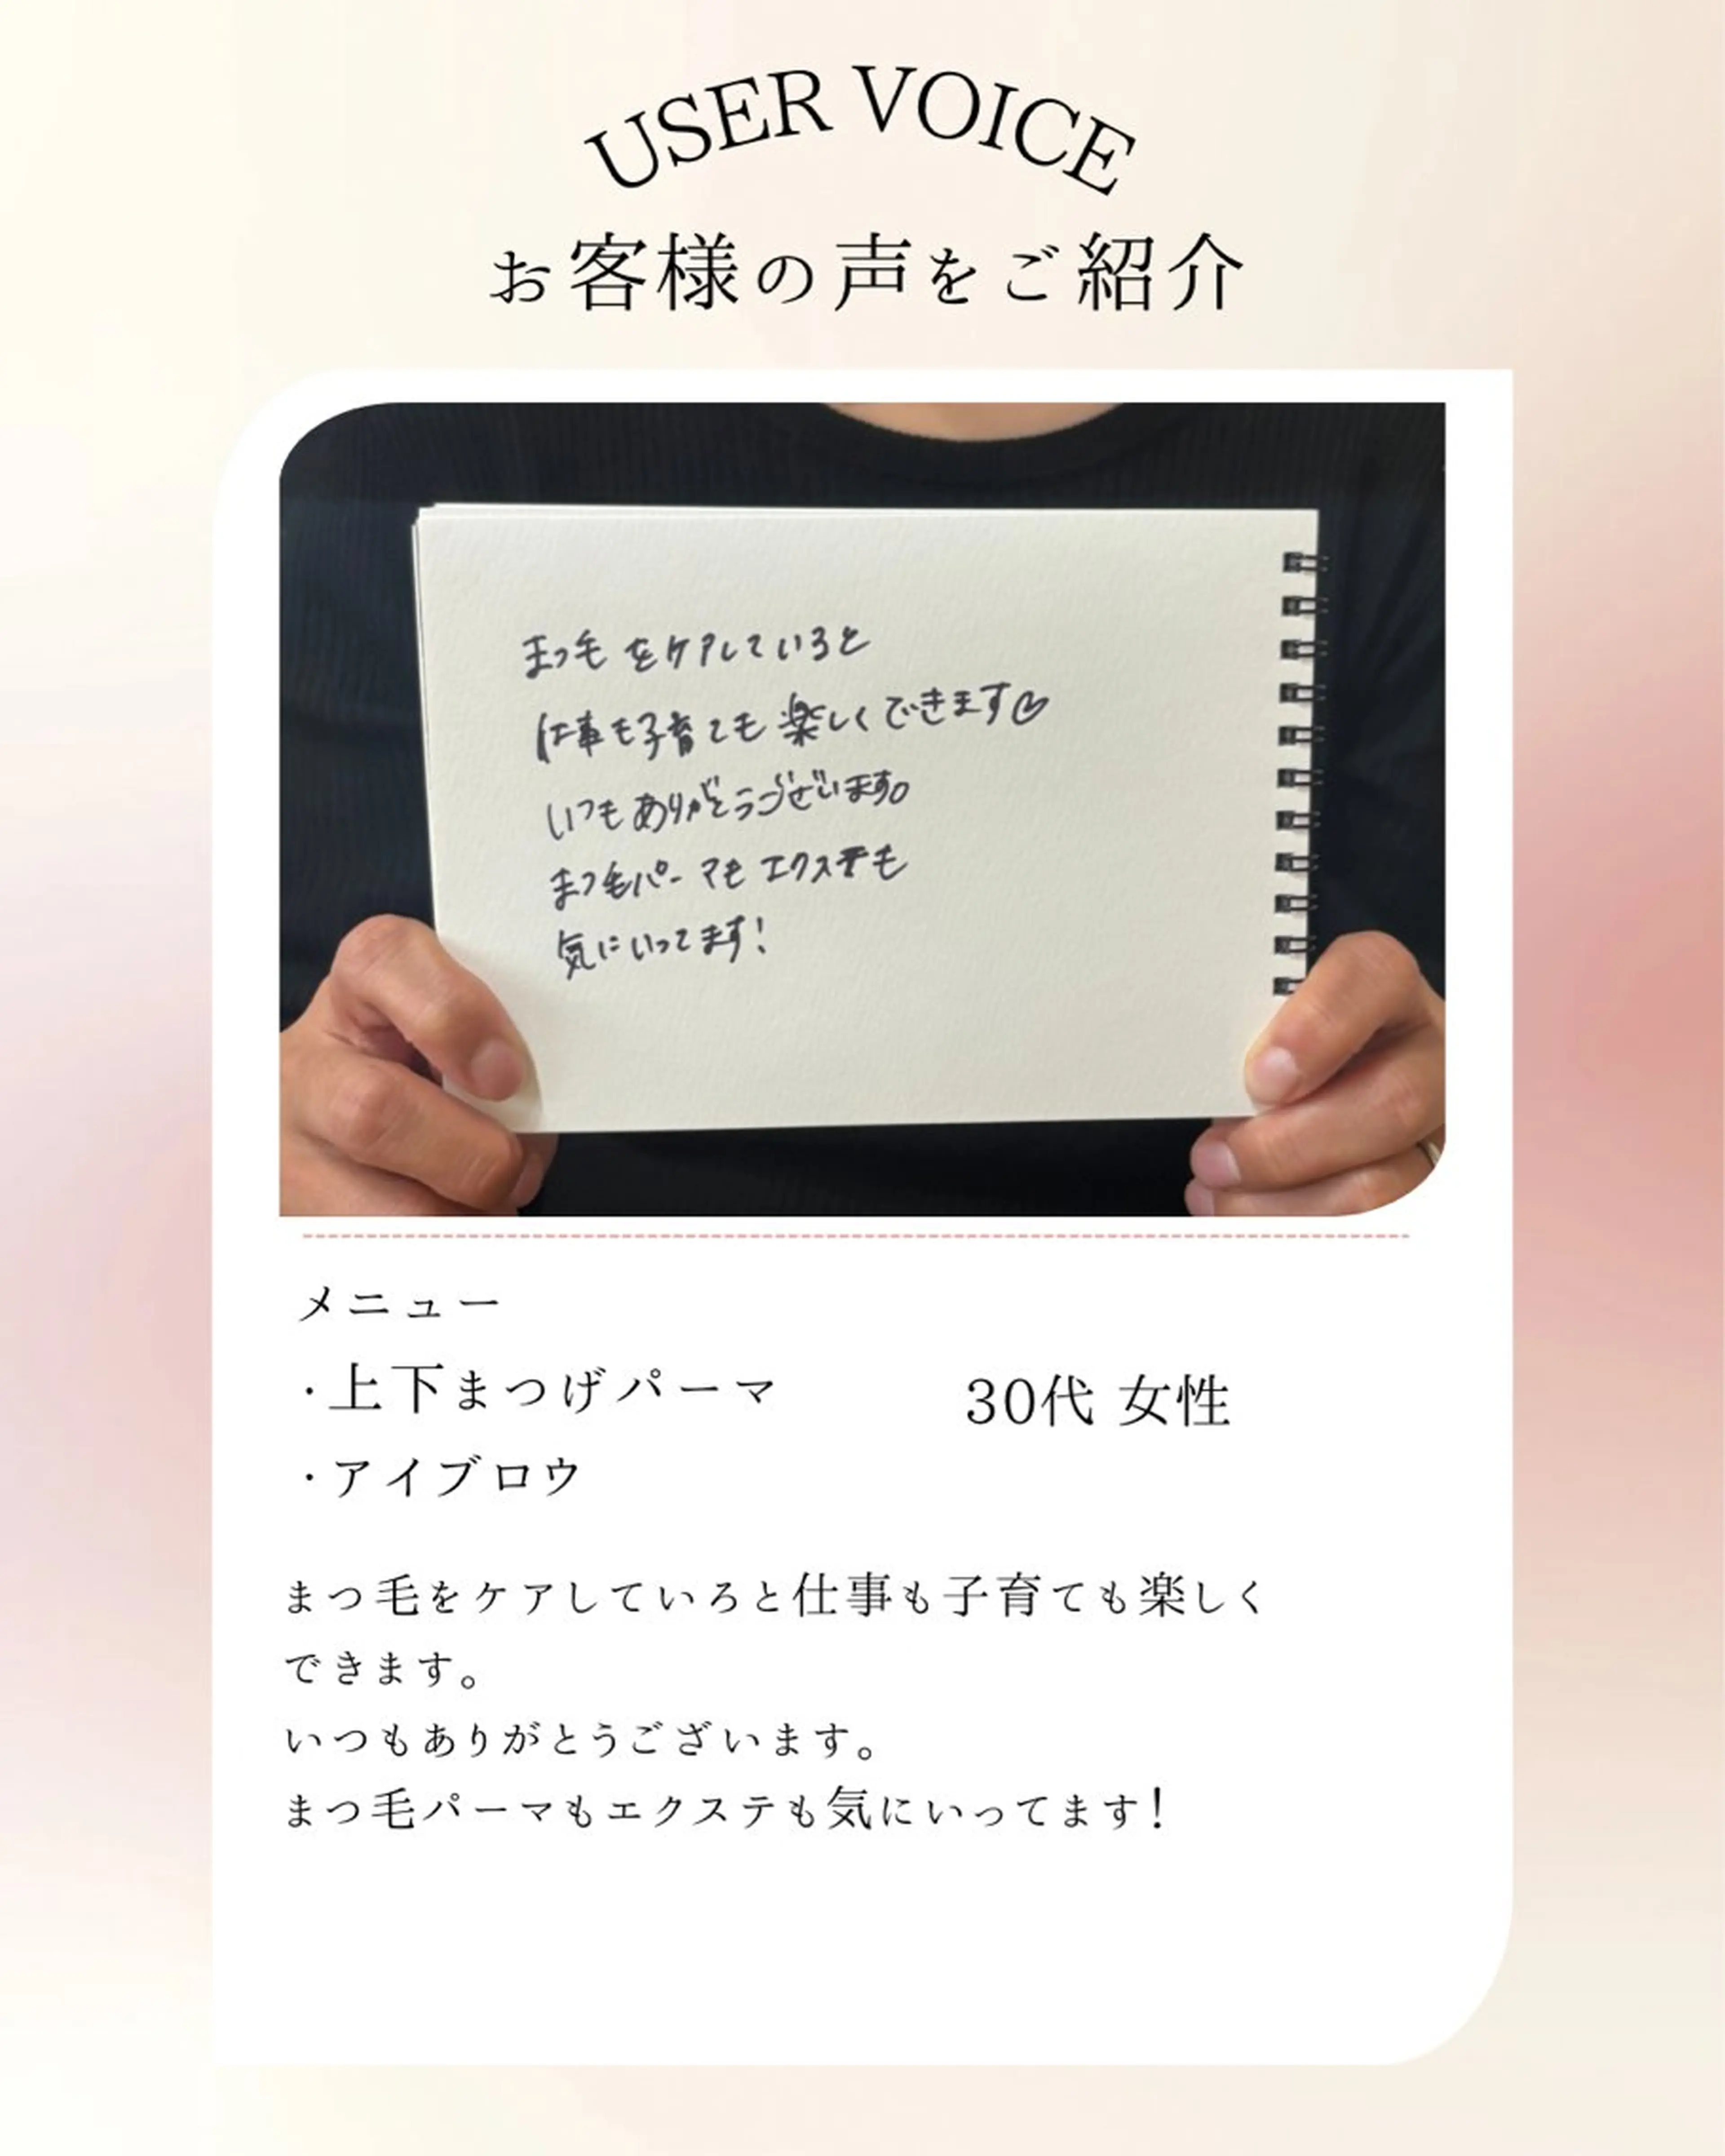 USER VOICE
お客様の声をご紹介
まつ毛をケアしていると
仕事も子育ても楽しくできます♡
いつもありがとうございます。
まつ毛パーマもエクステも
気にいってます!
メニュー
・上下まつげパーマ
30代 女性
・アイブロウ
まつ毛をケアしていろと仕事も子育ても楽しく
できます。
いつもありがとうございます。
まつ毛パーマもエクステも気にいってます!